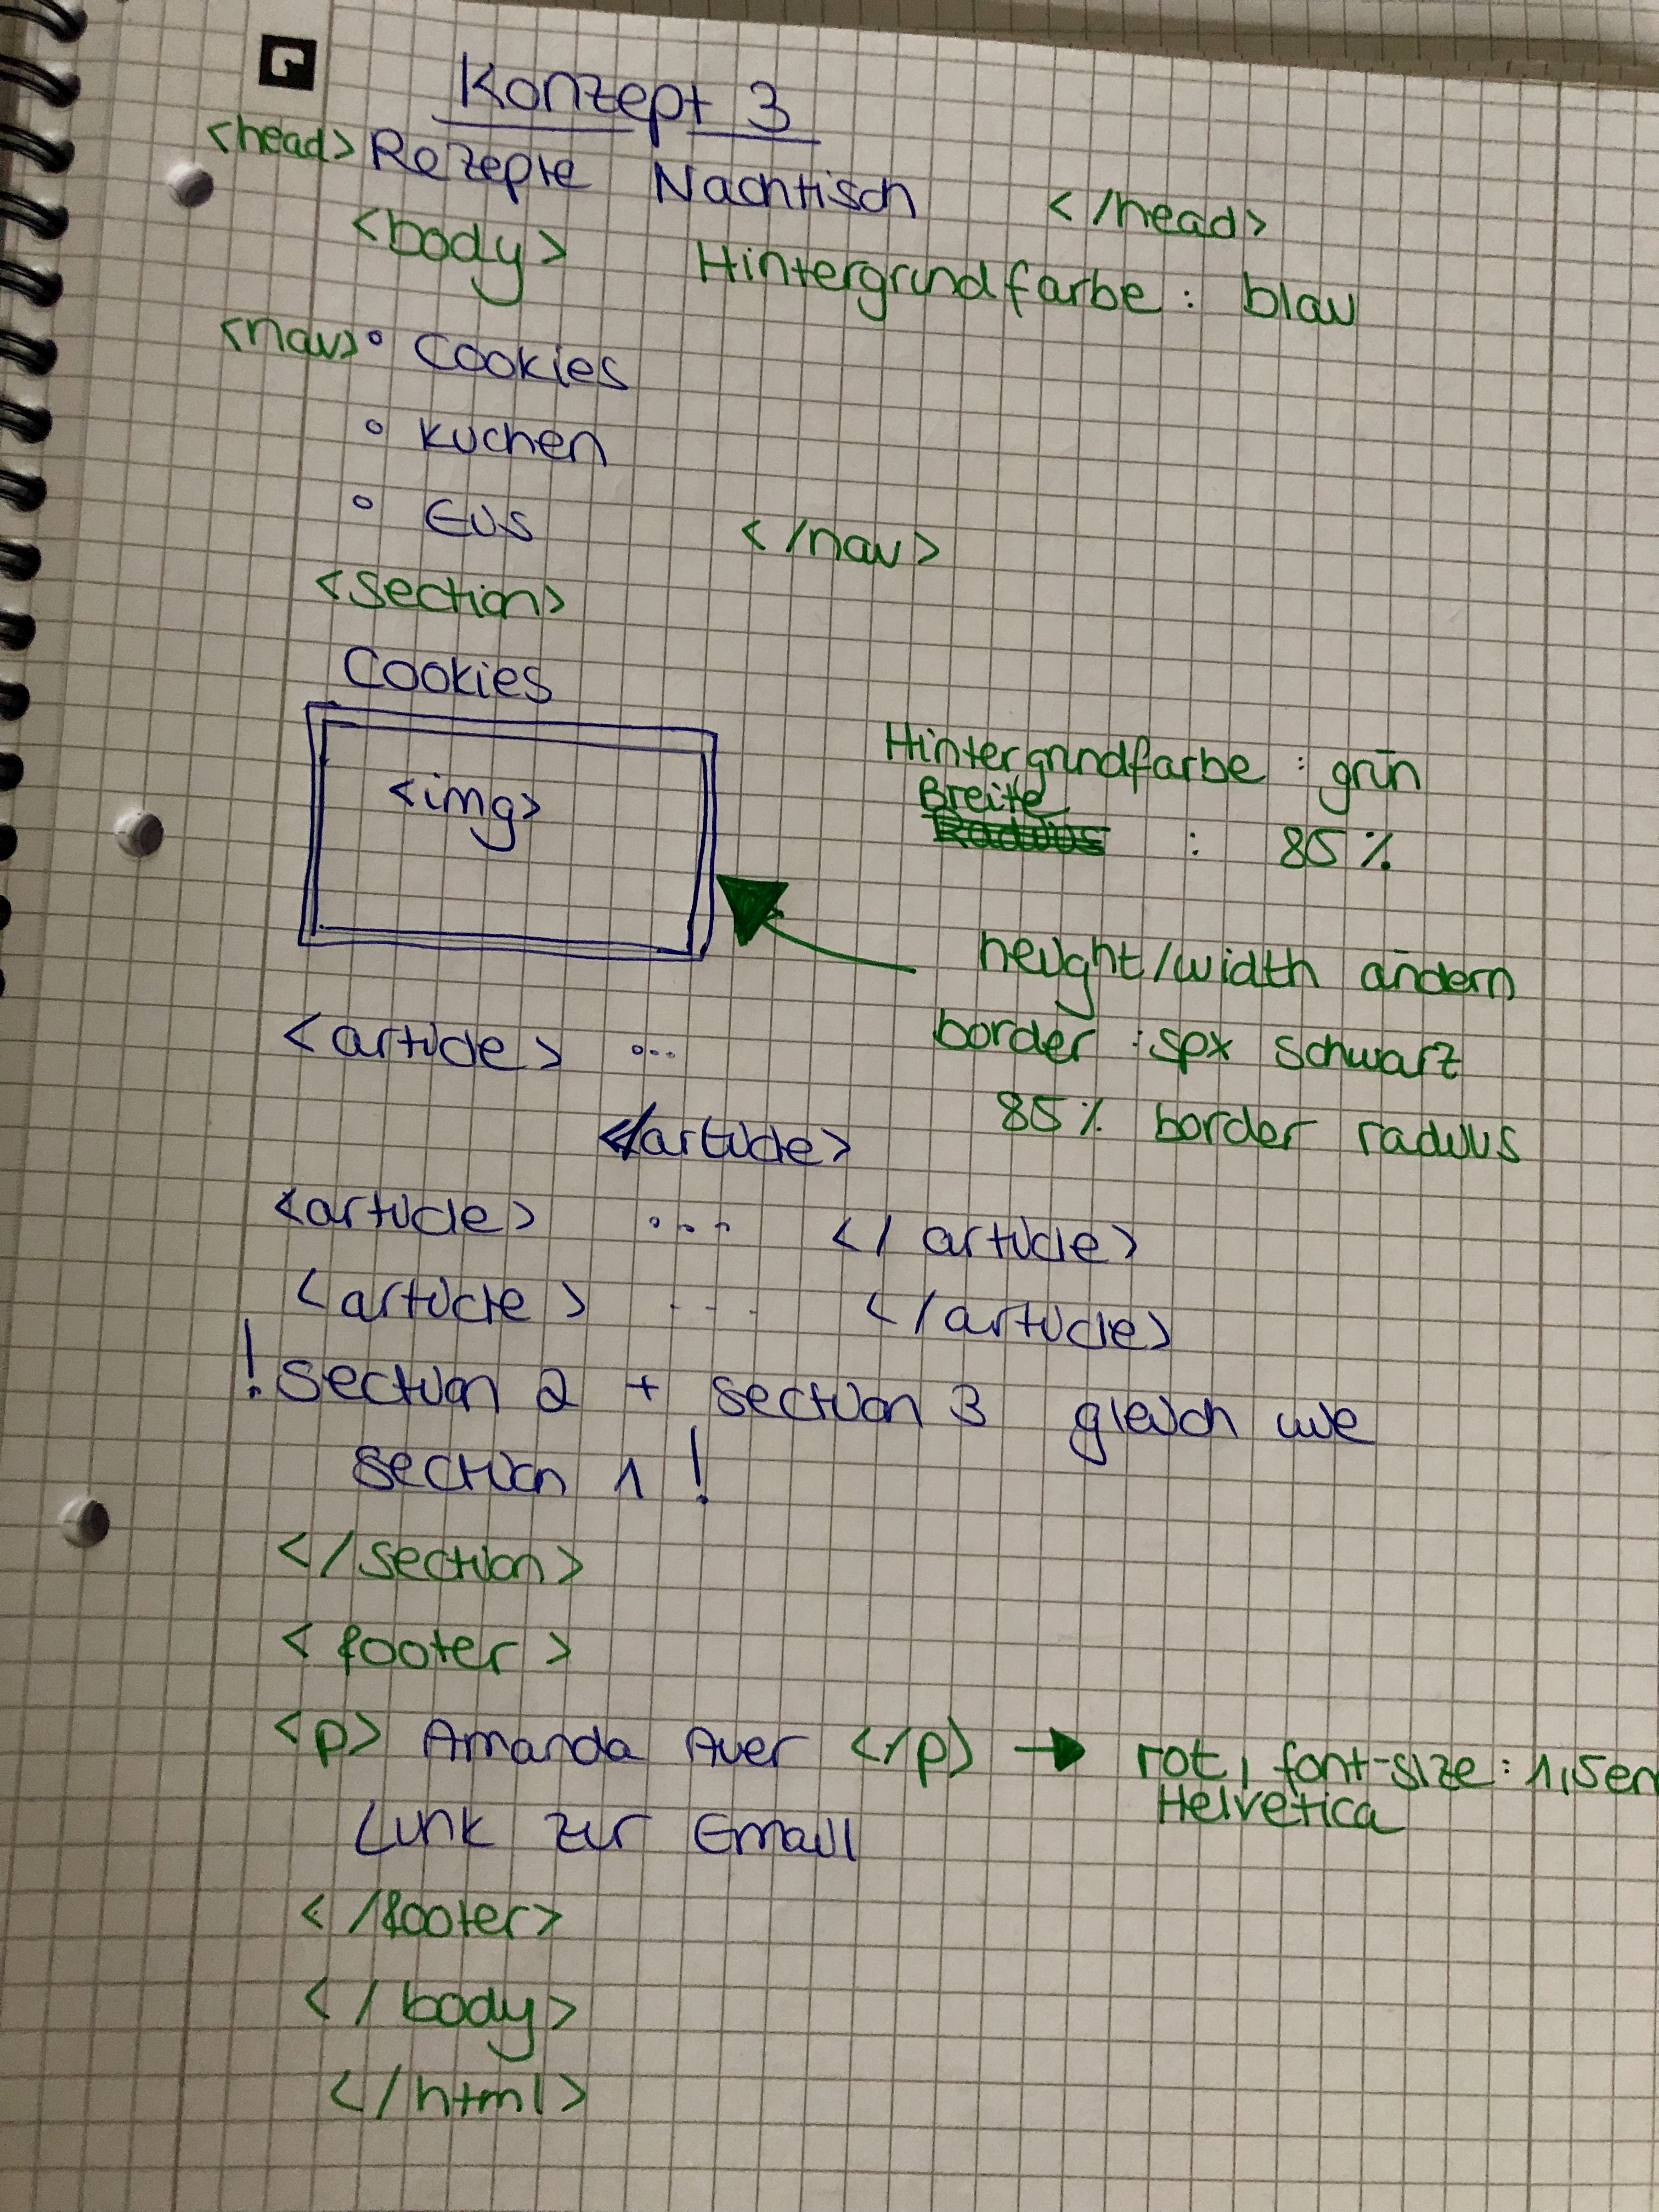 Konzept 3
<head> Rezepte Nachtisch </head>
<body> Hintergrundfarbe : blau
<nav> ° Cookies
° Kuchen
° Eis </nav>
<section>
Cookies
<img>
Hintergrundfarbe : grün
Breite : 85 %
height/width ändern
border : 5px schwarz
85 % border radius
<article> ...
</article>
<article> ... </article>
<article> ... </article>
! section 2 + section 3 gleich wie
section 1 !
</section>
<footer>
<p> Amanda Auer </p> → rot, font-size : 1,5em
Helvetica
Link zur Email
</footer>
</body>
</html>